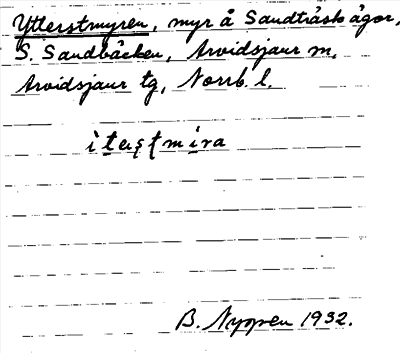 Ytterstmyren, myr å Sandträsks ägor,
S. Sandbäcken, Arvidsjaur m,
Arvidsjaur tg, Norrb. l.
B. Nyppen 1932.